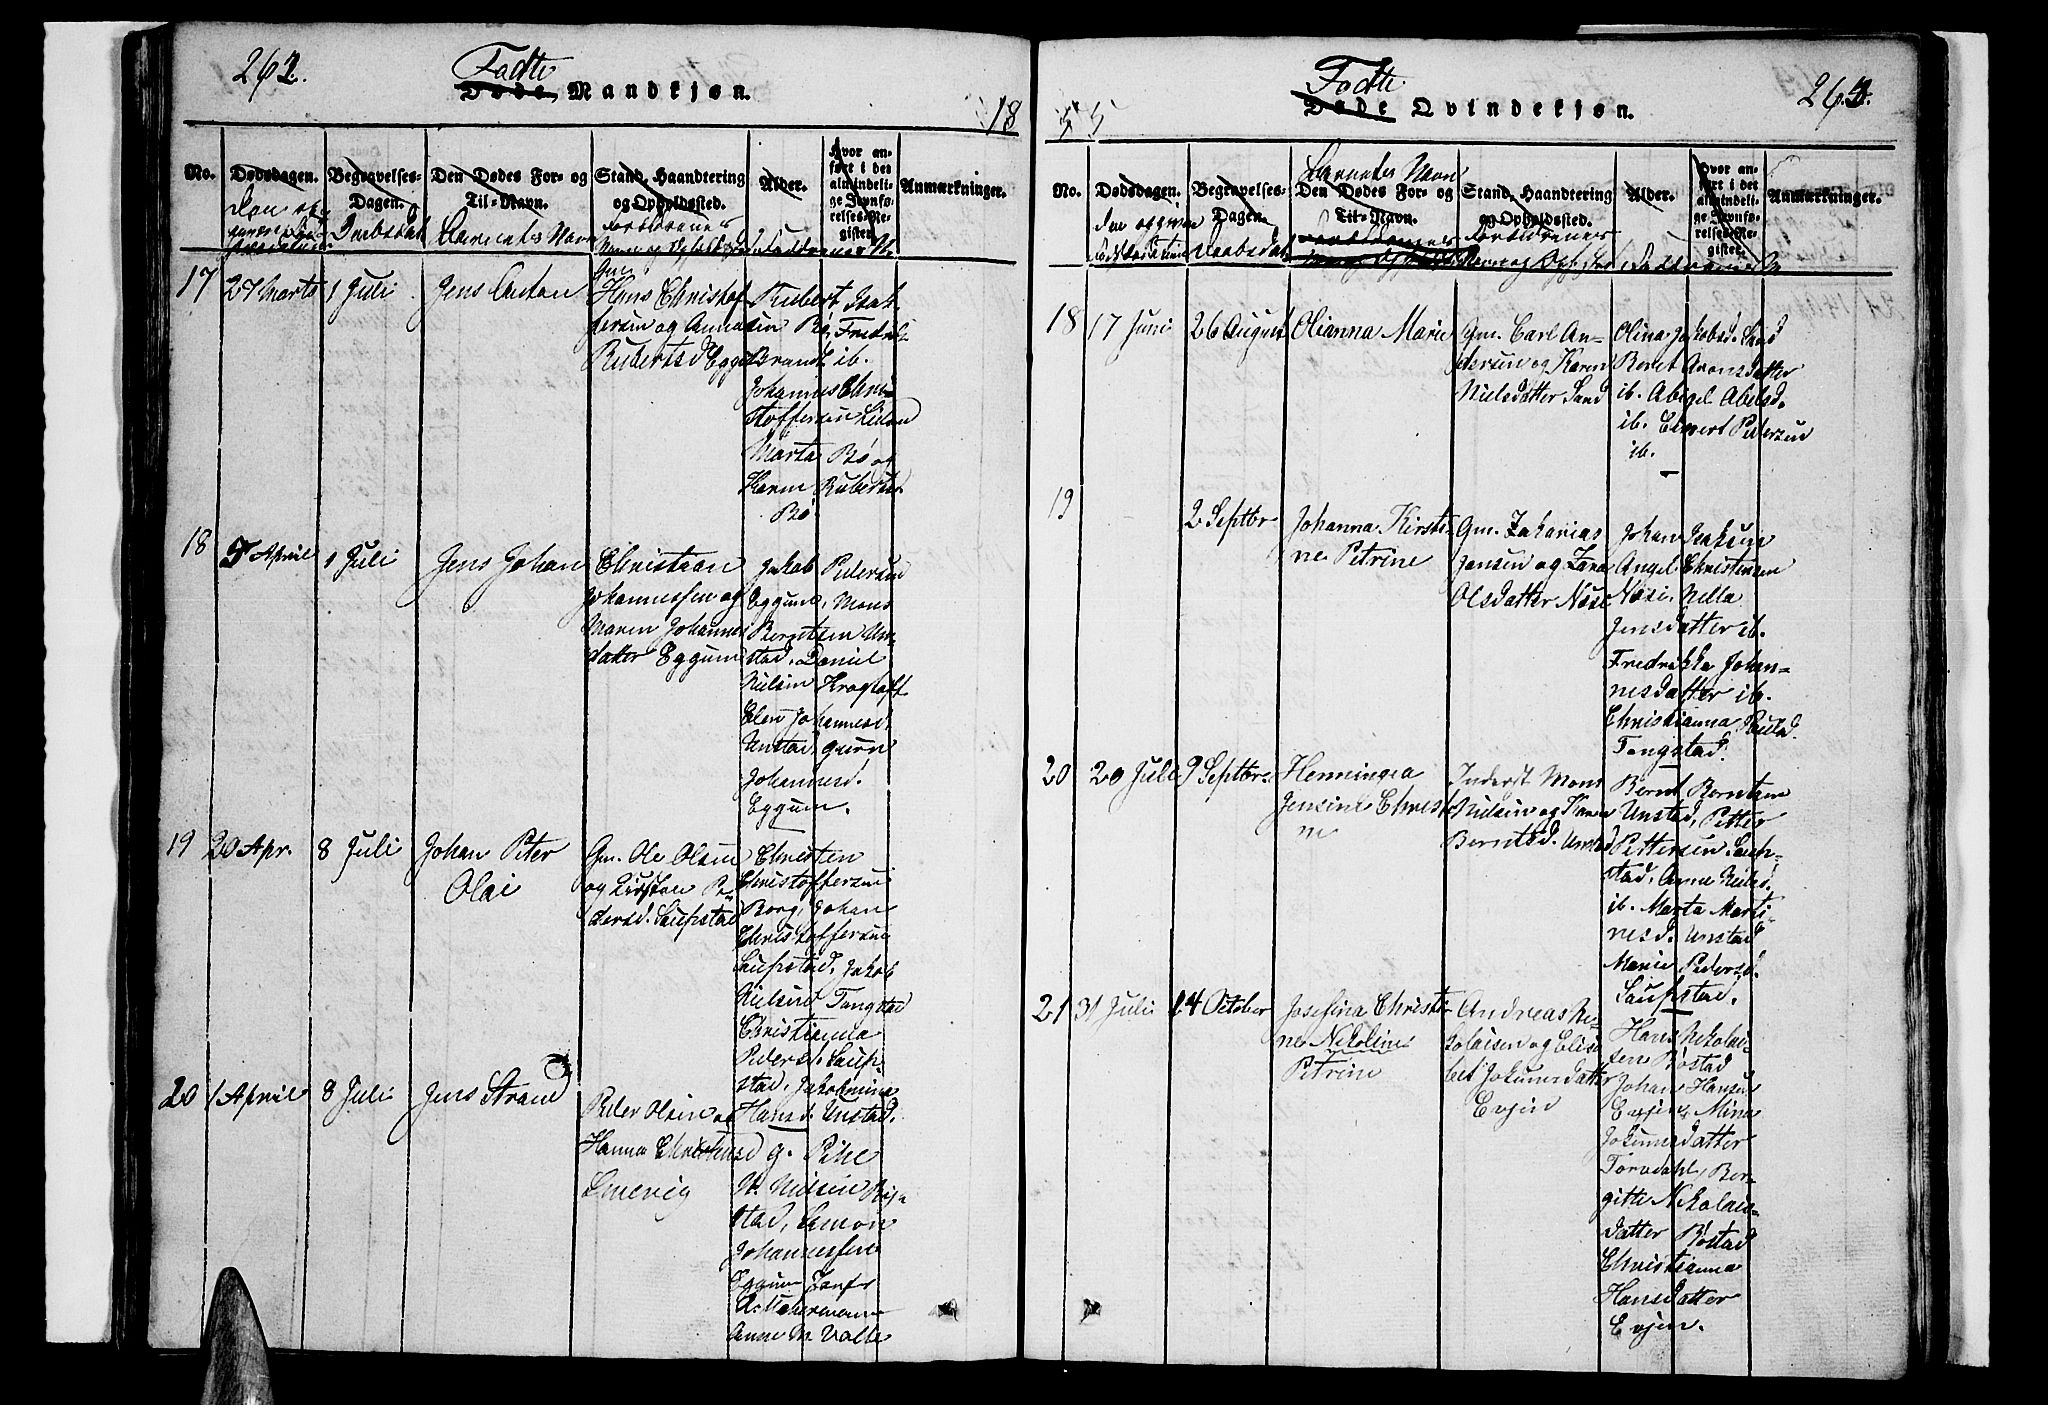 262.
Fødte
Døde, Mandkjøn.
18
No.
Dødsdagen.
Begravelses-
Dagen.
Daabsdat
Den Dødes For- og
Til-Navn.
Barnets Navn
Stand, Haandtering
og Opholdssted.
Forældrenes
Alder.
Faddrenes N.
Hvor an-
ført i det
almindeli-
ge Jevnfø-
relses-Re-
gister.
Anmærkninger.
17
27 Marts
1 Juli
Jens Anton
Gm.
Hans Christof
fersen og Anna
Rubertsd Eggum
Rubert Isak
sen Bø, Fredrik
Brandt ib.
Johannes Chri-
stoffersen Liland
Marta Bø og
Karen Ruberts.
Bø
18
5 April
1 Juli
Jens Johan
Christian
Johannessen og
Maren Johannes
datter Eggum
Jakob Pedersen
Eggum, Mons
Berntsen Un-
stad, Daniel
Nielsen Kragtoft
Elen Johannesd.
Unstad, Guron
Johannesd.
Eggum.
19
20 Apr.
8 Juli
Johan Peter
Olai
Gm. Ole Olsen
og Kirsten Pe-
dersd. Saupstad
Christen
Christoffersen
Borg, Johan
Christoffersen
Saupstad, Jakob
Nielsen Tangstad
Christianna
Pedersd. Saup-
stad, Jakobmina
Hansd. Unstad.
20
1 April
8 Juli
Jens Strand
Peder Olsen og
Hanna Christensd
Smevig
g. Pike
N. Nielsen Bøs-
stad, Simon
Johannessen
Eggum
Anne M. Valle
55
Fødte
Døde Qvindekjøn.
263.
No.
Dødsdagen.
den opgivne
Fødselsdatum
Begravelses-
Dagen.
Daabsdat
Barnets Navn
Den Dødes For- og
Til-Navn.
Stand, Haandtering
og Opholdssted.
Forældrenes
Navn og Opholdst
Alder.
Faddrenes N.
Hvor an-
ført i det
almindeli-
ge Jevnfø-
relses-Re-
gister.
Anmærkninger.
18
17 Juni
26 August
Olianna Marie
Gm. Carl An-
dersen og Karen
Nielsdatter Sand
Olina Jakobsd. Sand
Beret Aronsdatter
ib. Abigel Abelsd.
ib. Edvert Pedersen
ib.
19
2 Septbr
Johanna Kirsti-
ne Petrine
Gm. Zakarias
Jensen og Zara
Olsdatter Nøse
Johan Isaksen
Angel Christensen
Nøse, Nella
Jensdatter ib.
Fredrikka Johan-
nesdatter ib.
Christianna Paulsd.
Tangstad.
20
20 Juli
9 Septbr.
Henningea
Jensine Christi
ne
Inderst Mons
Nielsen og Karen
Berntsd. Unstad
Bernt Berntsen
Unstad, Petter
Pettersen Saup-
stad, Anne Nielsd.
ib. Marta Marti-
nesd. Unstad
Marie Pedersd.
Saupstad.
21
31 Juli
14 October
Josefina Christi-
ne Nikoline
Petrine
Andreas Ni-
kolaisen og Elisa
bet Jokumsdatter
Evjen
Hans Nikolai-
sen Bøstad
Johan Hansen
Evjen, Mina
Jokumsdatter
Torvdahl, Ber-
gitte Nikolais-
datter Bøstad
Christianna
Hansdatter
Evjen.